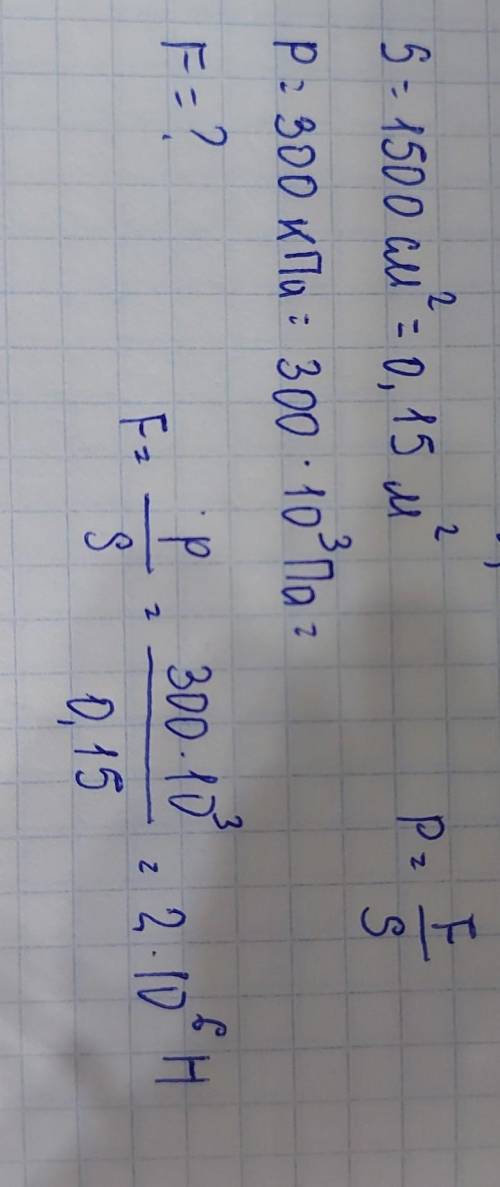 S = 1500 см² = 0,15 м²
p = F/S
p = 300 кПа = 300 · 10³ Па =
F = ?
F = p/S = 300 · 10³/0,15 = 2 · 10⁶ Н